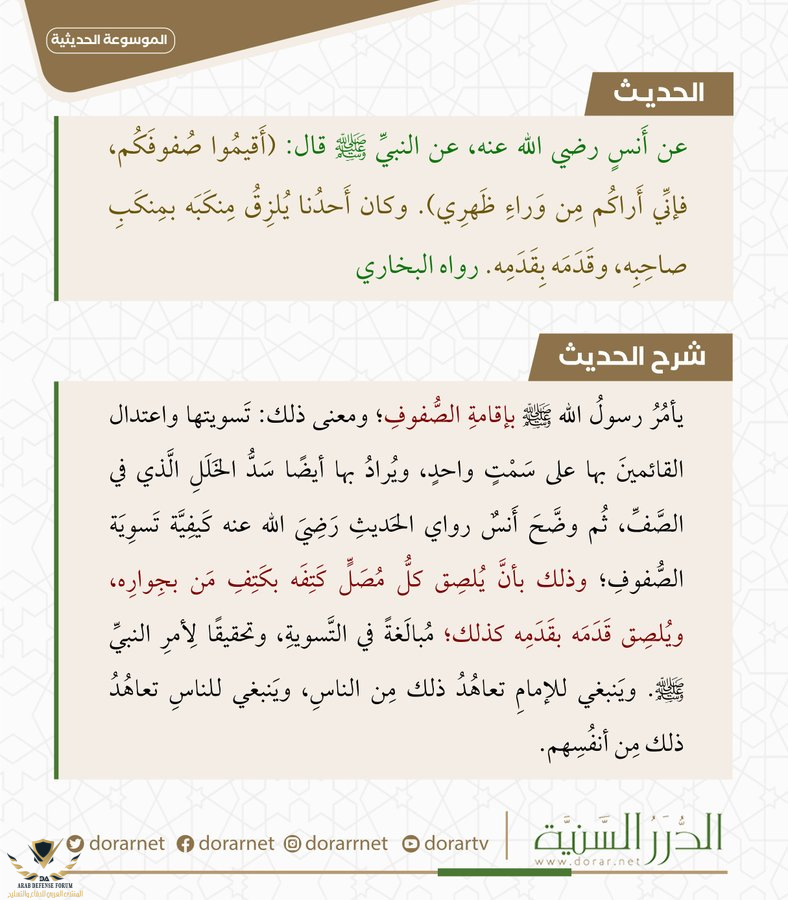 الموسوعة الحديثية
الحديث
عن أَنسٍ رضي الله عنه، عن النبيِّ ﷺ قال: (أَقيمُوا صُفوفَكُم،
فإنِّي أَراكُم مِن وَراءِ ظَهرِي). وكان أَحدُنا يُلزِقُ مِنكَبَه بمِنكَبِ
صاحِبِه، وقَدَمَه بِقَدَمِه. رواه البخاري
شرح الحديث
يأمُرُ رسولُ الله ﷺ بإقامةِ الصُّفوفِ؛ ومعنى ذلك: تَسويتها واعتدال
القائمينَ بها على سَمْتٍ واحدٍ، ويُرادُ بها أيضًا سَدُّ الخَلَلِ الَّذي في
الصَّفِّ، ثُم وضَّحَ أَنسٌ رواي الحَديثِ رَضِيَ الله عنه كَيفِيَّة تَسوِيَة
الصُّفوفِ؛ وذلك بأنَّ يُلصِق كلُّ مُصَلٍّ كَتِفَه بكَتِفِ مَن بجِوارِه،
ويُلصِق قَدَمَه بقَدَمِه كذلك؛ مُبالَغةً في التَّسويةِ، وتحقيقًا لِأمرِ النبيِّ
ﷺ. ويَنبغي للإمامِ تعاهُدُ ذلك مِن الناسِ، ويَنبغي للناسِ تعاهُدُ
ذلك مِن أنفُسِهم.
الدُّرَرُ السَّنِيَّة
www.dorar.net
dorarnet dorarnet dorarrnet dorartv
DA
ARAB DEFENSE FORUM
المنتدى العربي للدفاع والتسليح